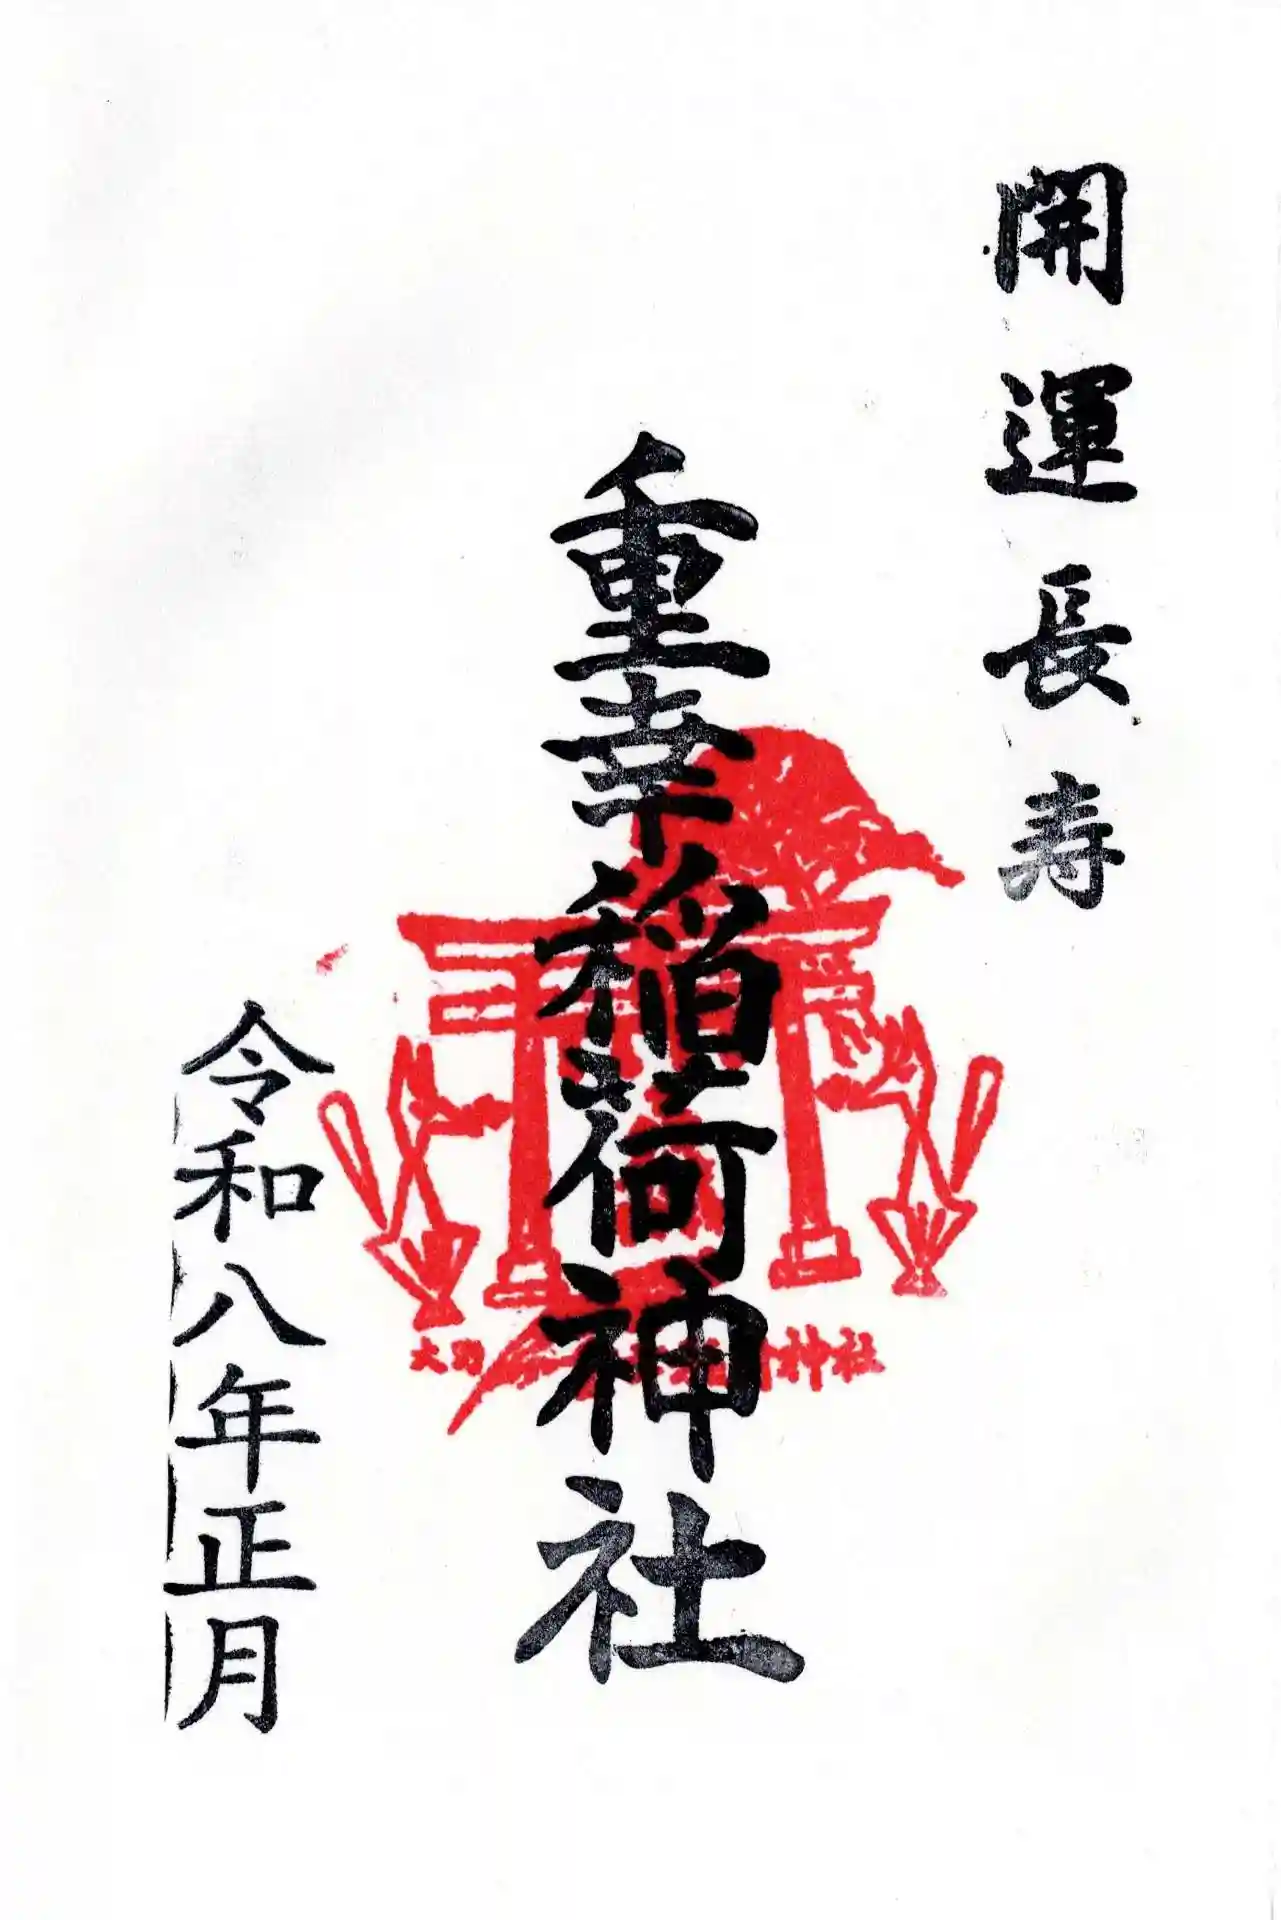 開運長寿
重幸稲荷神社
令和八年正月
神社